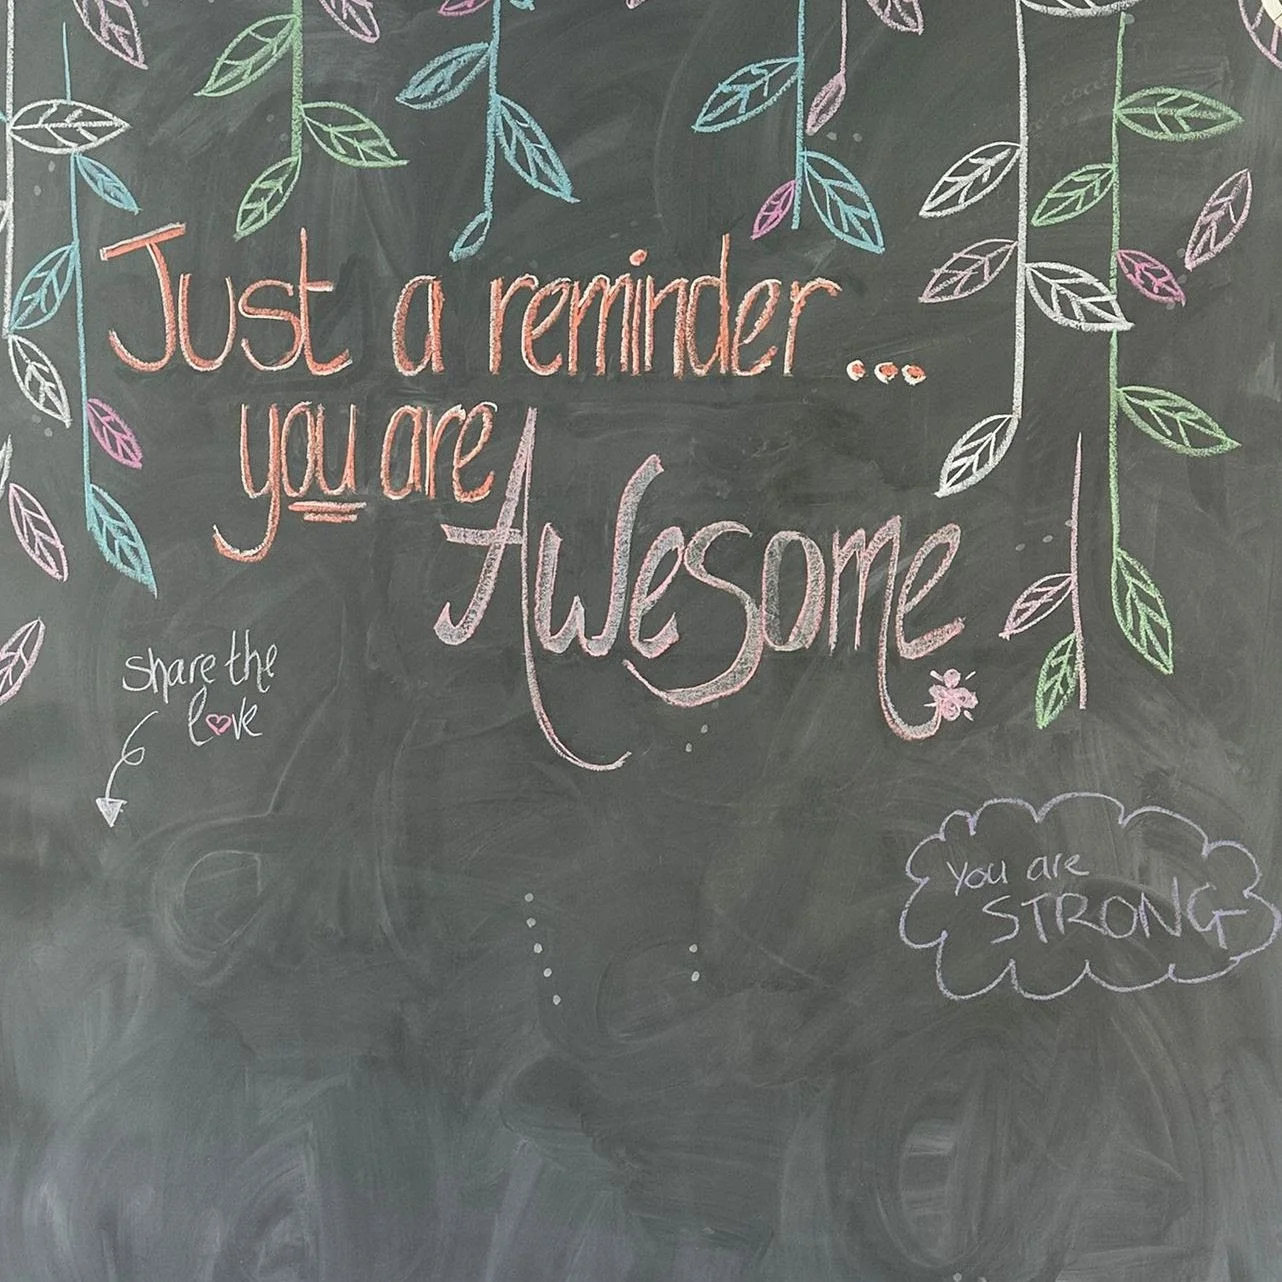 Just a reminder...
you are
Awesome
share the
love
You are
STRONG